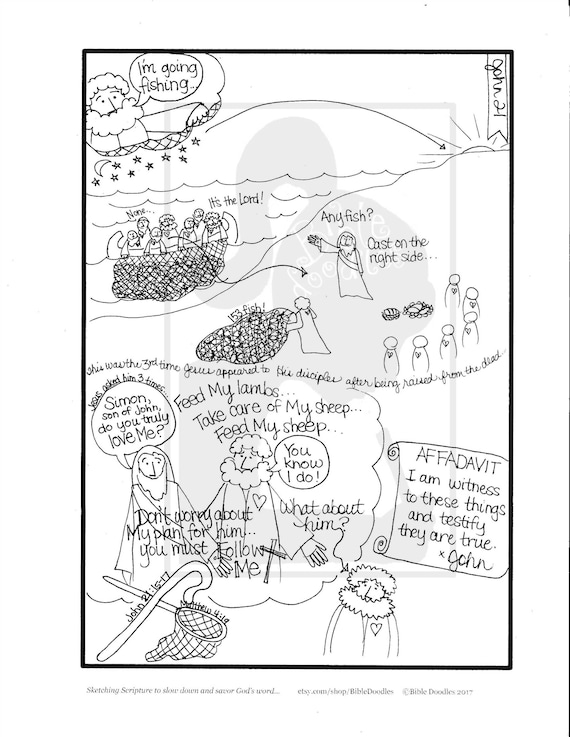 I'm going
fishing...
John 21
None...
It's the Lord!
Any fish?
Cast on the
right side...
153 fish!
This was the 3rd time Jesus appeared to His disciples after being raised from the dead.
Jesus asked him 3 times
Simon,
son of John,
do you truly
love Me?
Feed My lambs...
Take care of My sheep...
Feed My sheep...
You
know
I do!
What about
him?
Don't worry about
My plan for him...
you must Follow
ME
AFFADAVIT
I am witness
to these things
and testify
they are true.
x John
John 21:15-17
Matthew 4:19
Sketching Scripture to slow down and savor God's word... etsy.com/shop/BibleDoodles ©Bible Doodles 2017